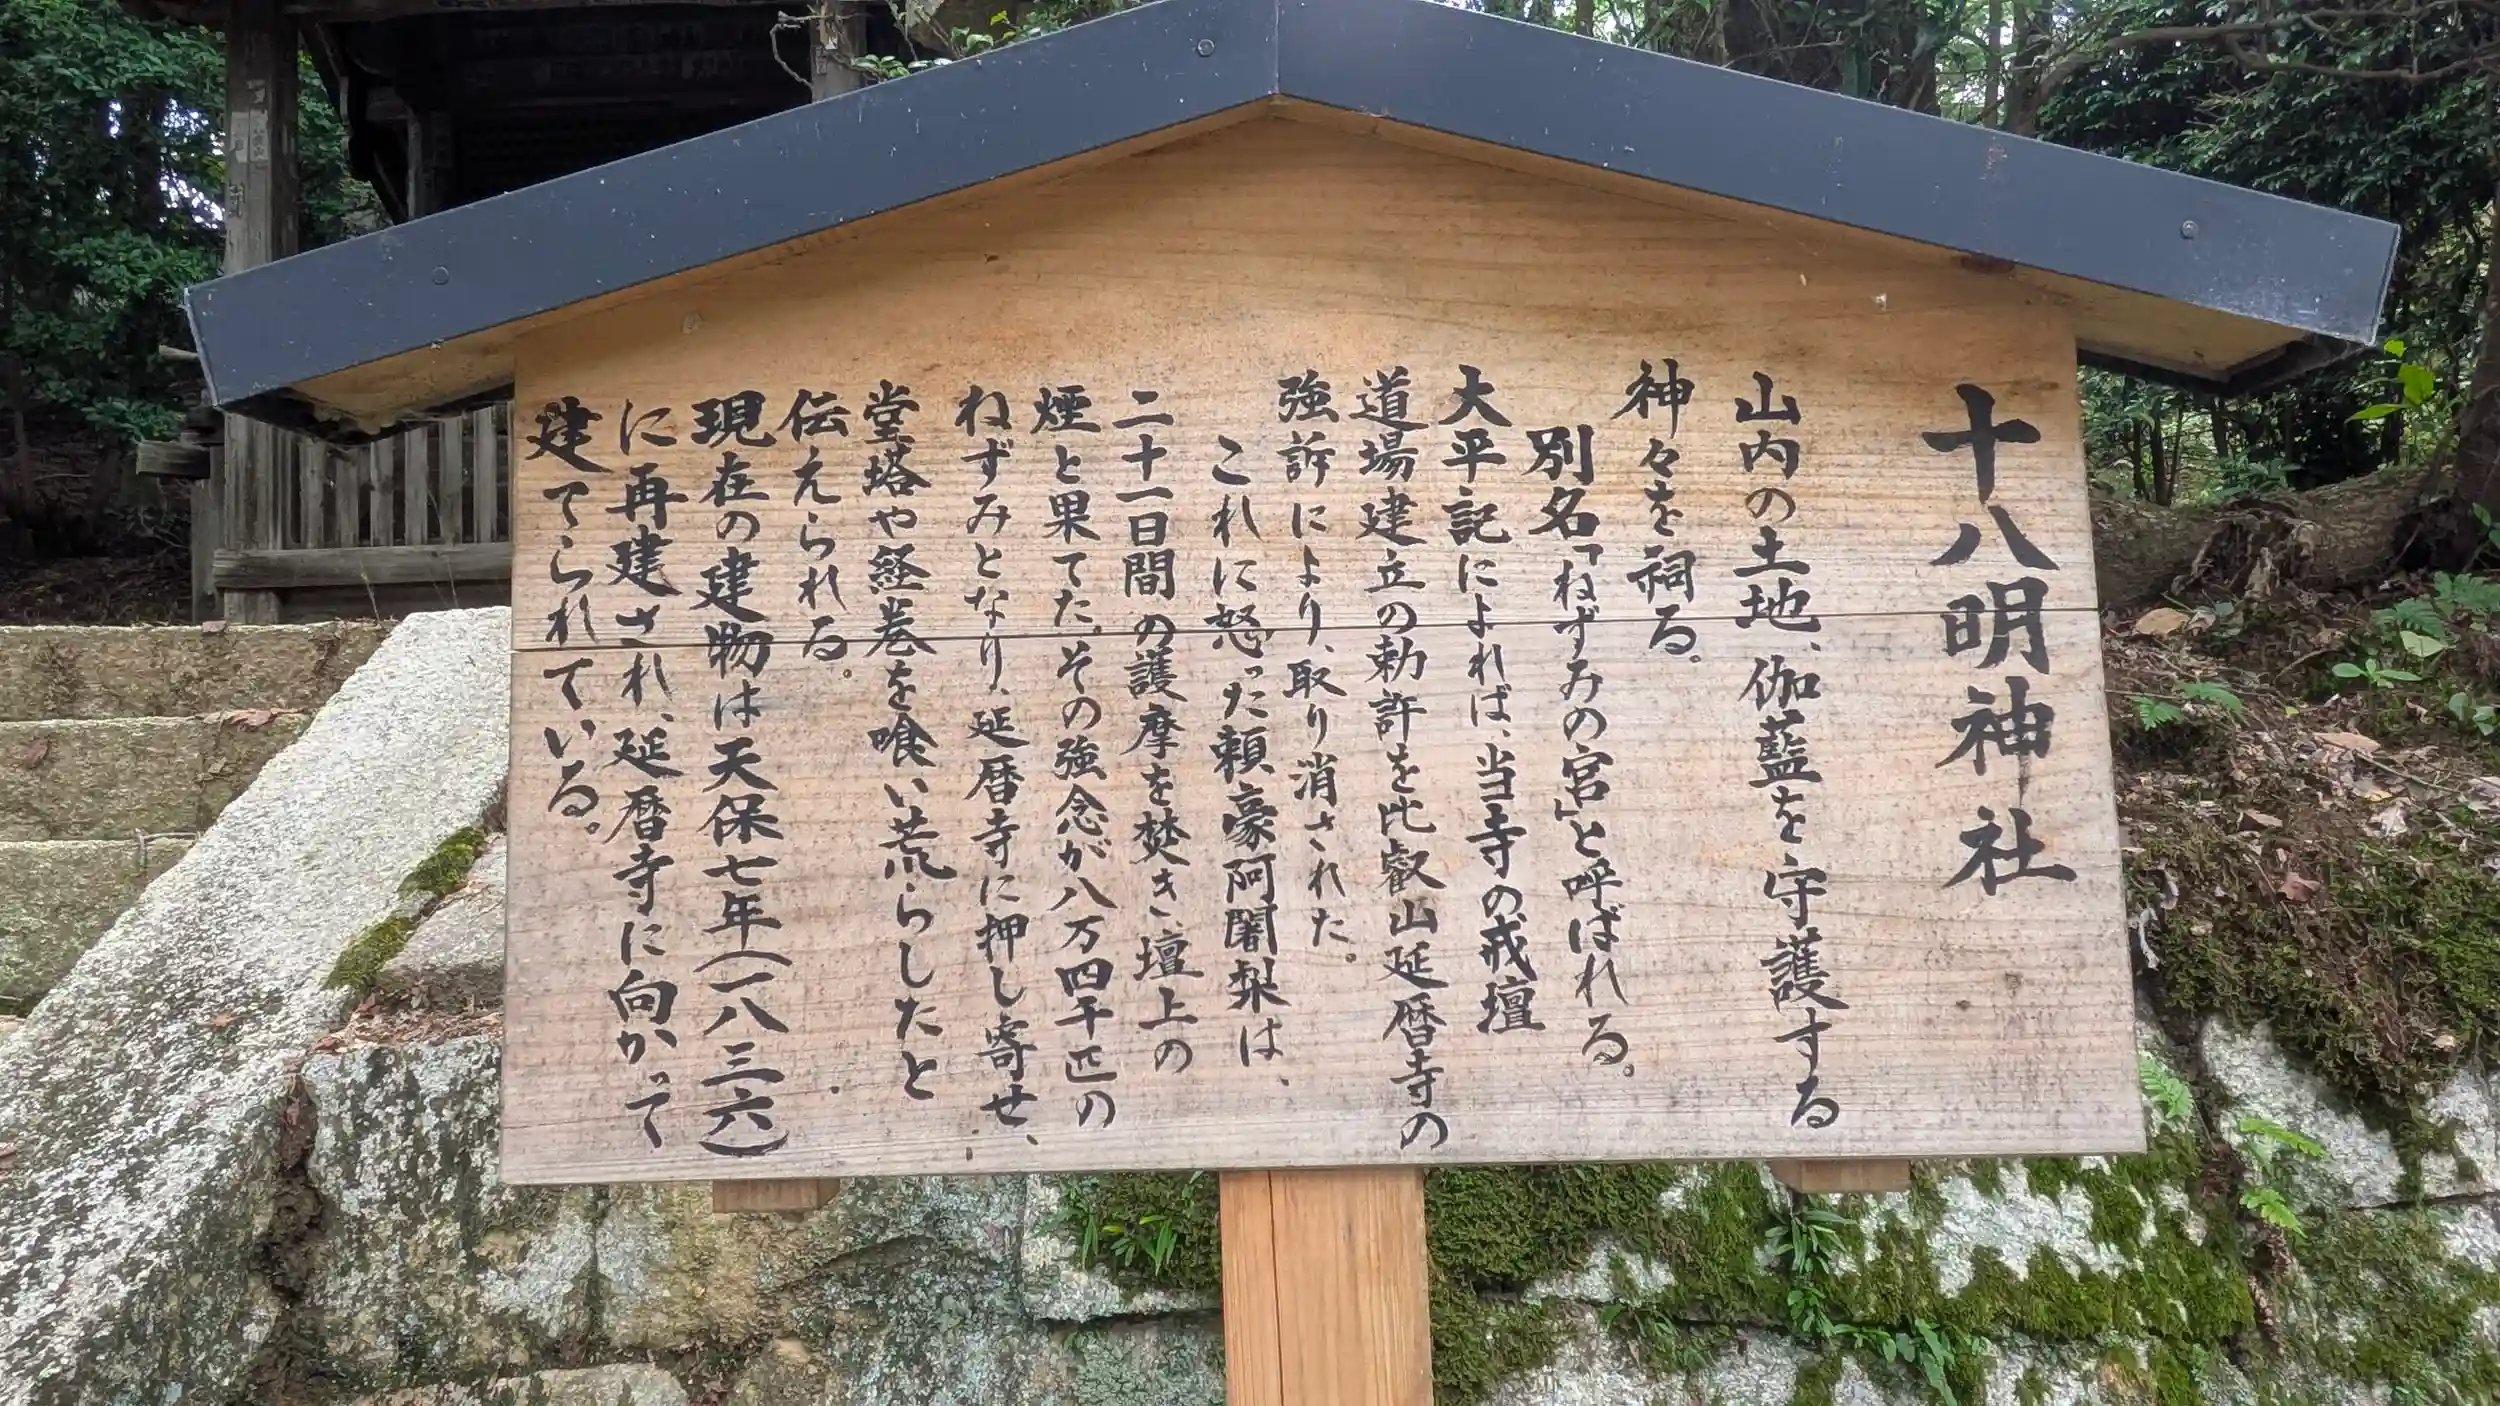 十八明神社
山内の土地、伽藍を守護する
神々を祠る。
別名「ねずみの宮」と呼ばれる。
大平記によれば、当寺の戒壇
道場建立の勅許を比叡山延暦寺の
強訴により、取り消された。
これに怒った頼豪阿闍梨は、
二十一日間の護摩を焚き、壇上の
煙と果てた。その強念が八万四千匹の
ねずみとなり、延暦寺に押し寄せ、
堂塔や経巻を喰い荒らしたと
伝えられる。
現在の建物は天保七年(一八三六)
に再建され、延暦寺に向かって
建てられている。